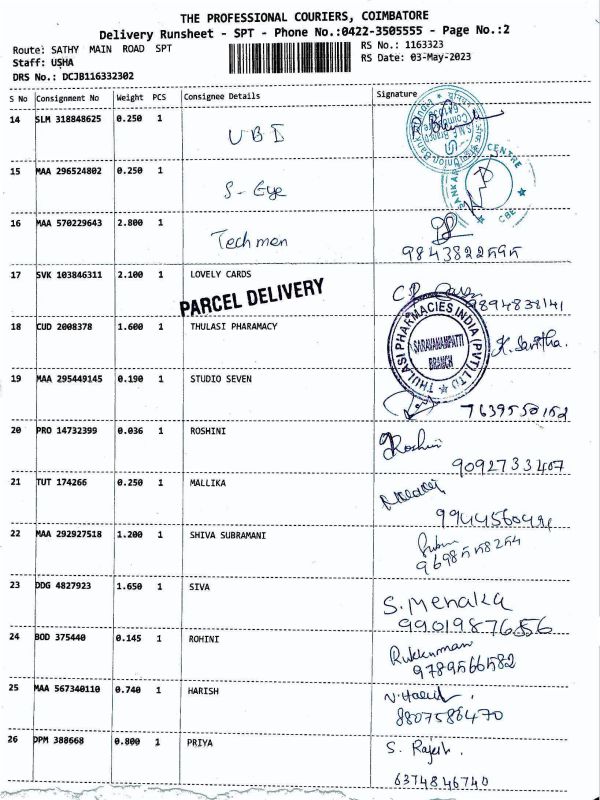 THE PROFESSIONAL COURIERS, COIMBATORE
Delivery Runsheet - SPT - Phone No.:0422-3505555 - Page No.:2
Route: SATHY MAIN ROAD SPT
RS No.: 1163323
Staff: USHA
RS Date: 03-May-2023
DRS No.: DCJB116332302
S No Consignment No Weight PCS Consignee Details Signature
14 SLM 318848625 0.250 1 UBI
15 MAA 296524802 0.250 1 S-Eye
CENTRE
CBE
16 MAA 570229643 2.800 1 Techmen
9843822595
17 SVK 103846311 2.100 1 LOVELY CARDS
PARCEL DELIVERY
9894838141
18 CUD 2008378 1.600 1 THULASI PHARAMACY
THULASI PHARMACIES INDIA (PVT) LTD
SARAVANAMPATTI
BRANCH
K. Savitha.
19 MAA 295449145 0.190 1 STUDIO SEVEN
7639550152
20 PRO 14732399 0.036 1 ROSHINI Roshini
9092733407
21 TUT 174266 0.250 1 MALLIKA
22 MAA 292927518 1.200 1 SHIVA SUBRAMANI
9698558254
23 DDG 4827923 1.650 1 SIVA S. Menaka
24 BOD 375440 0.145 1 ROHINI Rukkumani
9789566582
25 MAA 567340110 0.740 1 HARISH
8807586470
26 DPM 388668 0.800 1 PRIYA S. Rajesh.
6374846740